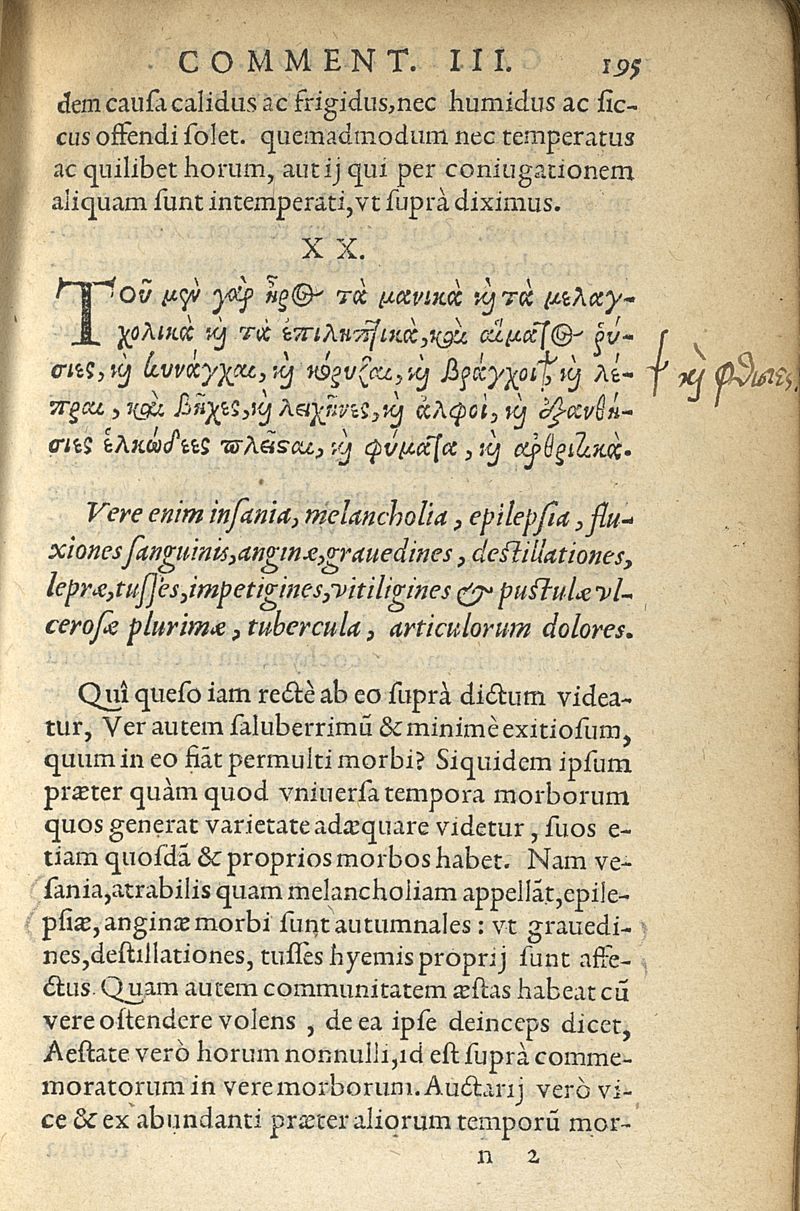 COMMENT. III. 195
dem cauſa calidus ac frigidus, nec humidus ac ſic-
cus offendi ſolet. quemadmodum nec temperatus
ac quilibet horum, aut ij qui per coniugationem
aliquam ſunt intemperati, vt ſuprà diximus.
XX.
Τοῦ μὲν γὰρ ἦρος τὰ μανικὰ καὶ τὰ μελαγ-
χολικὰ καὶ τὰ ἐπιληπτικὰ, καὶ αἵματος ῥύ-
σιες, καὶ κυνάγχαι, καὶ κόρυζαι, καὶ βράγχοι, καὶ λέ-
† καὶ φθίσιες,
πραι, καὶ βῆχες, καὶ λειχῆνες, καὶ ἀλφοὶ, καὶ ἐξανθή-
σιες ἑλκώδεες πλεῖσται, καὶ φύματα, καὶ ἀρθριτικά.
Vere enim inſania, melancholia, epilepſia, flu-
xiones ſanguinis, anginæ, grauedines, deſtillationes,
lepræ, tuſſes, impetigines, vitiligines & puſtulæ vl-
ceroſæ plurimæ, tubercula, articulorum dolores.
Quî queſo iam rectè ab eo ſuprà dictum videa-
tur, Ver autem ſaluberrimũ & minimè exitioſum,
quum in eo fiãt permulti morbi? Siquidem ipſum
præter quàm quod vniuerſa tempora morborum
quos generat varietate adæquare videtur, ſuos e-
tiam quoſdã & proprios morbos habet. Nam ve-
ſania, atrabilis quam melancholiam appellãt, epile-
pſiæ, anginæ morbi ſunt autumnales: vt grauedi-
nes, deſtillationes, tuſſes hyemis proprij ſunt affe-
ctus. Quam autem communitatem æſtas habeat cũ
vere oſtendere volens, de ea ipſe deinceps dicet,
Aeſtate verò horum nonnulli, id eſt ſuprà comme-
moratorum in vere morborum. Auctarij verò vi-
ce & ex abundanti præter aliorum temporũ mor-
n 2